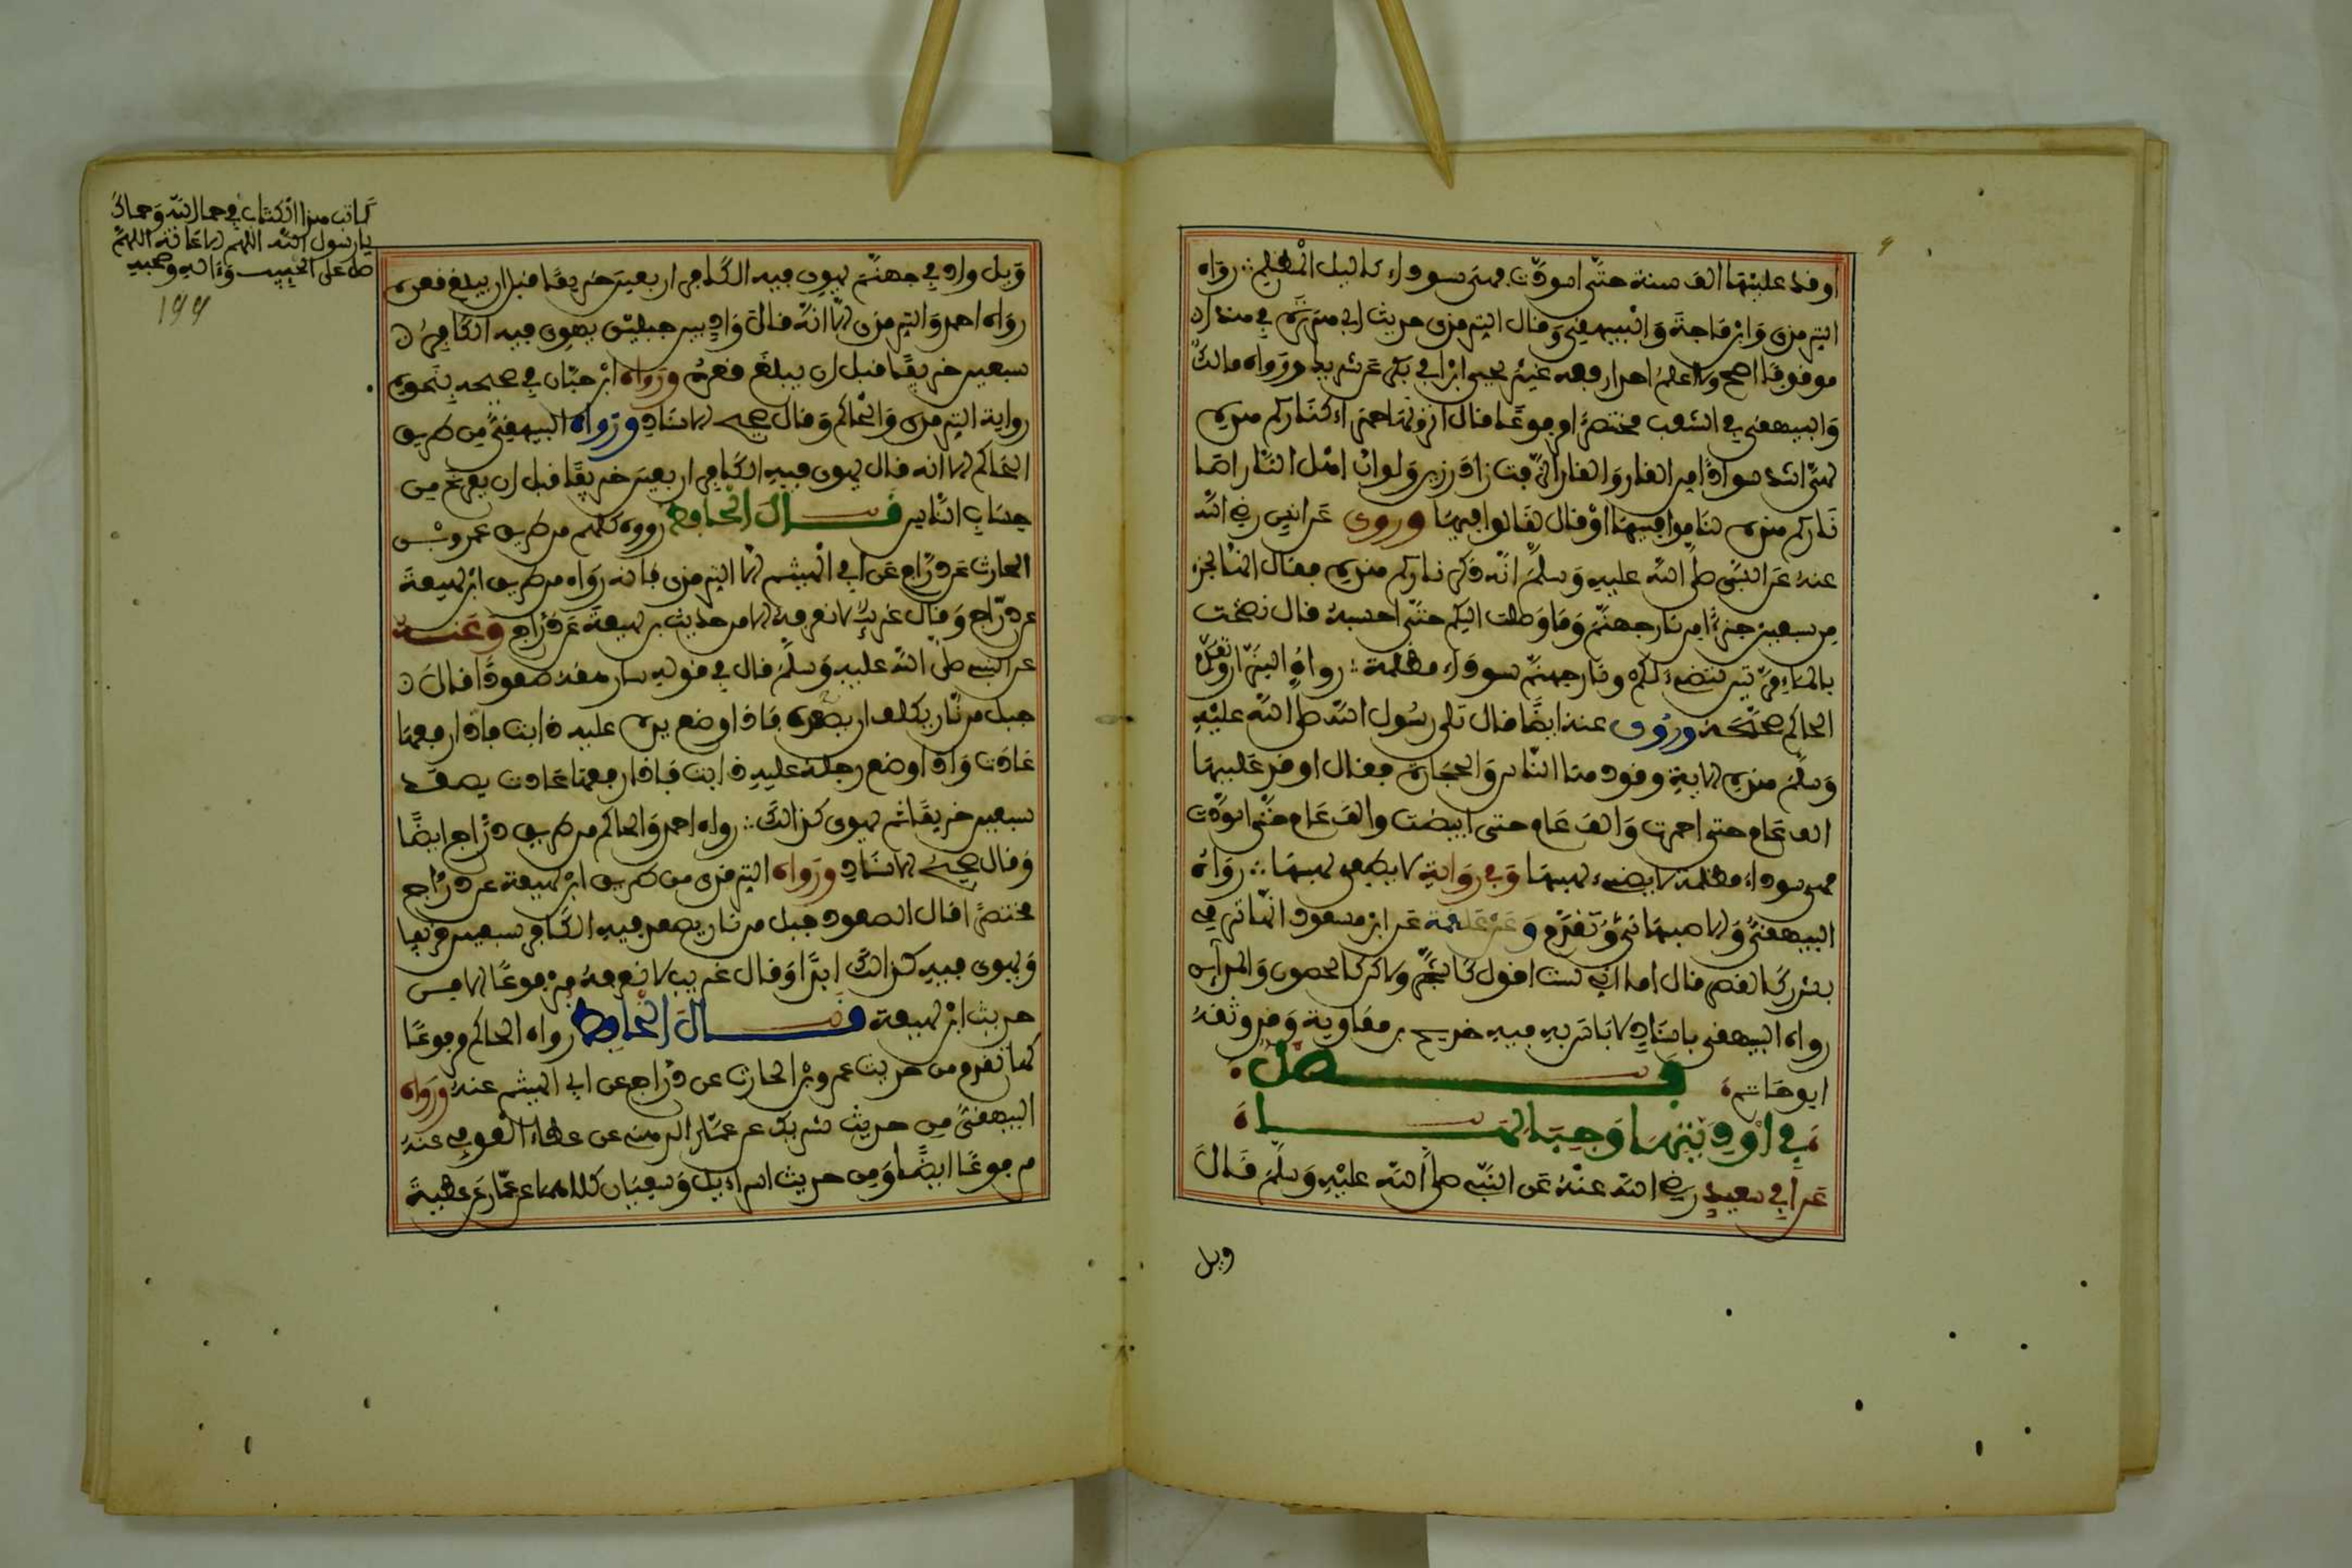 اوقد عليها الف سنة حتى اسودت فهى سوداء كالليل المظلم رواه
الترمذى وابن ماجة والبيهقي وقال الترمذى حديث ابى هريرة في هذا
موقوفا اصح ولا اعلم احدا رفعه غير يحيى ابن ابي بكير عن شريك ورواه مالك
والبيهقى في الشعب مختصرا مرفوعا قال اترونها حمراء كناركم هذه
لهي اشد سوادا من القار والقار الزفت زاد رزين ولو ان اهل النار اصابوا
ناركم هذه لناموا فيها او قال لقالوا فيها وروى عن انس رضي الله
عنه عن النبي صلى الله عليه وسلم انه ذكر ناركم هذه فقال انها لجزء
من سبعين جزءا من نار جهنم وما وصلت اليكم حتى احسبه قال نضحت
بالماء مرتين لتضيء لكم ونار جهنم سوداء مظلمة رواه البزار وتقدم
الحاكم صححه وروى عنه ايضا قال تلى رسول الله صلى الله عليه
وسلم هذه الاية وقودها الناس والحجارة فقال اوقد عليها
الف عام حتى احمرت والف عام حتى ابيضت والف عام حتى اسودت
فهى سوداء مظلمة لا يضىء لهبها وفي رواية لا يطفى لهبها رواه
البيهقي والاصبهاني وتقدم وعن علقمة عن ابن مسعود انها ترمي
بشرر كالقصر قال اما اني لست اقول كالشجر ولاكن كالحصون والمدآئن
رواه البيهقى باسناد لا باس به فيه خديج بن معاوية وقد وثقه
ابو حاتم
فصل
في اوديتها وجبالها
عن أبي سعيد رضي الله عنه عن النبي صلى الله عليه وسلم قال
ويل
كاتب هذا الكتاب في حمى الله وحماك
يارسول الله اللهم
صل على الحبيب وءاله وصحبه
199
ويل واد في جهنم يهوى فيه الكافر اربعين خريفا قبل ان يبلغ قعره
رواه احمد والترمذى الا انه قال واد بين جبلين يهوى فيه الكافر
سبعين خريفا قبل ان يبلغ قعره ورواه ابن حبان في صحيحه بنحو
رواية الترمذى والحاكم وقال صحيح الاسناد ورواه البيهقي من طريق
الحاكم الا انه قال يهوى فيه الكافر اربعين خريفا قبل ان يفرغ من
حساب الناس قال الحافظ رووه كلهم من طريق عمرو بن
الحارث عن دراج عن ابي الهيثم الا الترمذى فانه رواه من طريق ابن لهيعة
عن دراج وقال غريب لا نعرفه الا من حديث بن لهيعة عن دراج وعنه
عن النبي صلى الله عليه وسلم قال في قوله سارهقه صعودا قال
جبل من نار يكلف ان يصعده فاذا وضع يده عليه ذابت فاذا رفعها
عادت واذا وضع رجله عليه ذابت فاذا رفعها عادت يصعد
سبعين خريفا ثم يهوى كذالك رواه احمد والحاكم من طريق دراج ايضا
وقال صحيح الاسناد ورواه الترمذى من طريق ابن لهيعة عن دراج
مختصرا قال الصعود جبل من نار يصعد فيه الكافر سبعين خريفا
ويهوى فيه كذالك ابدا وقال غريب لا نعرفه مرفوعا الا من
حديث ابن لهيعة قال الحافظ رواه الحاكم مرفوعا
كما تقدم من حديث عمرو بن الحارث عن دراج عن ابى الهيثم عنه ورواه
البيهقي من حديث شريك عن عمار الدهني عن عطاء العوفي عنه
مرفوعا ايضا ومن حديث اسراءيل وسفيان كلاهما عن عمار عن عطية